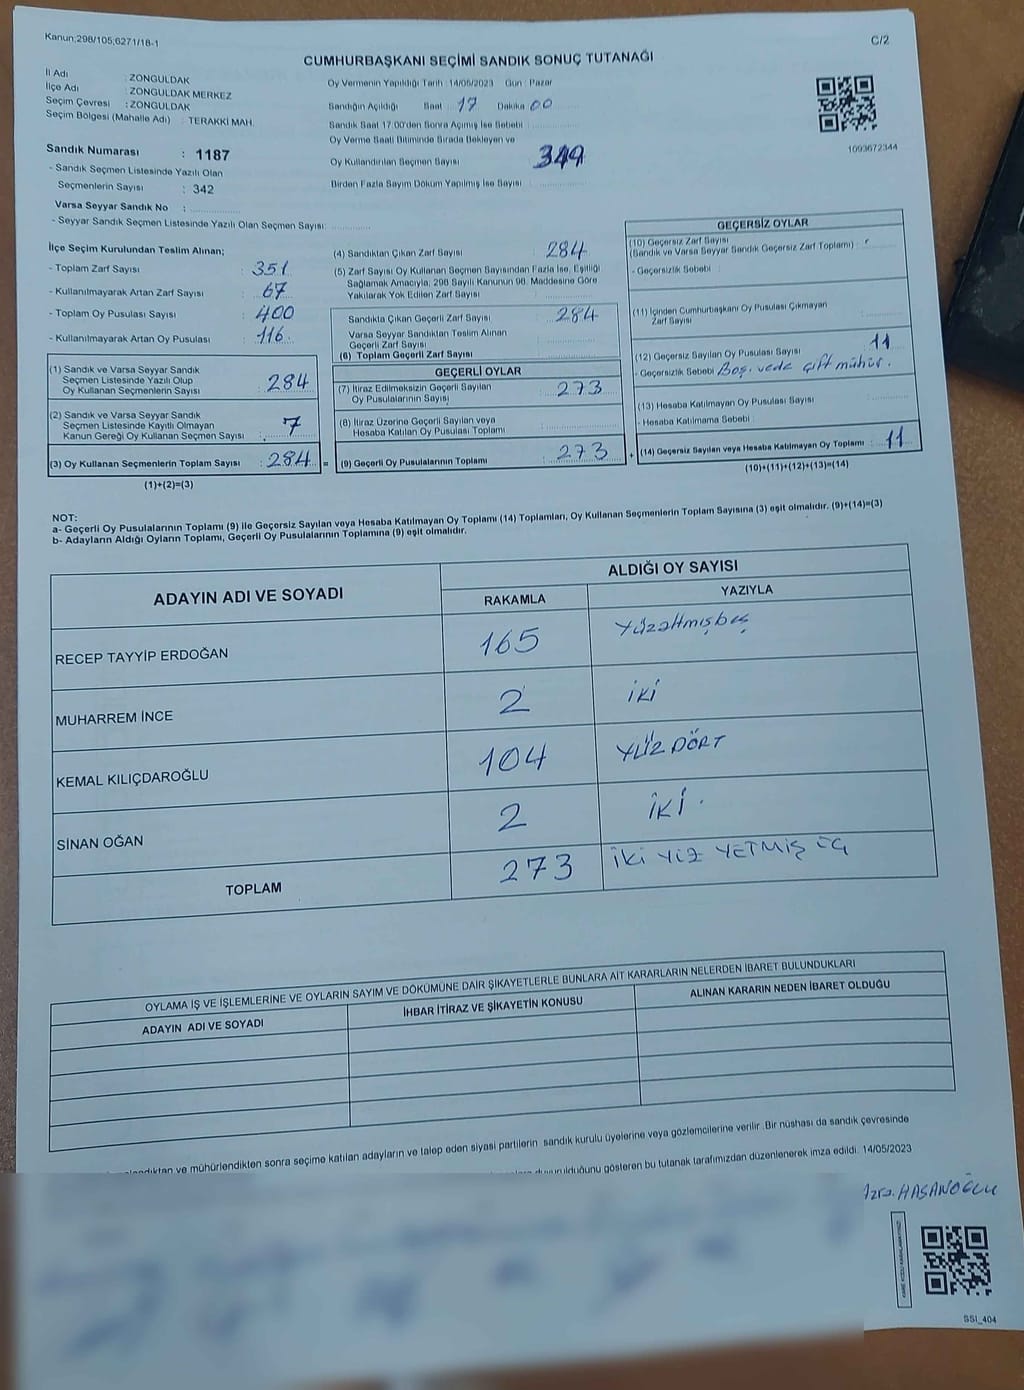 Kanun;298/105;6271/18-1
C/2
CUMHURBAŞKANI SEÇİMİ SANDIK SONUÇ TUTANAĞI
İl Adı : ZONGULDAK
İlçe Adı : ZONGULDAK MERKEZ
Seçim Çevresi : ZONGULDAK
Seçim Bölgesi (Mahalle Adı) : TERAKKİ MAH.
Oy Vermenin Yapıldığı Tarih : 14/05/2023 Gün : Pazar
Sandığın Açıldığı Saat : 17 Dakika : 00
Sandık Saat 17:00'den Sonra Açımış İse Sebebi :
Oy Verme Saati Bitiminde Sırada Bekleyen ve
Oy Kullandırılan Seçmen Sayısı : 349
Birden Fazla Sayım Döküm Yapılmış İse Sayısı :
1093672344
Sandık Numarası : 1187
- Sandık Seçmen Listesinde Yazılı Olan
Seçmenlerin Sayısı : 342
Varsa Seyyar Sandık No :
- Seyyar Sandık Seçmen Listesinde Yazılı Olan Seçmen Sayısı:
İlçe Seçim Kurulundan Teslim Alınan;
- Toplam Zarf Sayısı : 351
- Kullanılmayarak Artan Zarf Sayısı : 67
- Toplam Oy Pusulası Sayısı : 400
- Kullanılmayarak Artan Oy Pusulası : 116
(1) Sandık ve Varsa Seyyar Sandık
Seçmen Listesinde Yazılı Olup
Oy Kullanan Seçmenlerin Sayısı : 284
(2) Sandık ve Varsa Seyyar Sandık
Seçmen Listesinde Kayıtlı Olmayan
Kanun Gereği Oy Kullanan Seçmen Sayısı : 7
(3) Oy Kullanan Seçmenlerin Toplam Sayısı : 284 =
(1)+(2)=(3)
(4) Sandıktan Çıkan Zarf Sayısı : 284
(5) Zarf Sayısı Oy Kullanan Seçmen Sayısından Fazla İse, Eşitliği
Sağlamak Amacıyla; 298 Sayılı Kanunun 98. Maddesine Göre
Yakılarak Yok Edilen Zarf Sayısı :
Sandıkta Çıkan Geçerli Zarf Sayısı : 284
Varsa Seyyar Sandıktan Teslim Alınan
Geçerli Zarf Sayısı :
(6) Toplam Geçerli Zarf Sayısı
GEÇERLİ OYLAR
(7) İtiraz Edilmeksizin Geçerli Sayılan
Oy Pusulalarının Sayısı : 273
(8) İtiraz Üzerine Geçerli Sayılan veya
Hesaba Katılan Oy Pusulası Toplamı :
(9) Geçerli Oy Pusulalarının Toplamı : 273 +
GEÇERSİZ OYLAR
(10) Geçersiz Zarf Sayısı
(Sandık ve Varsa Seyyar Sandık Geçersiz Zarf Toplamı) :
- Geçersizlik Sebebi :
(11) İçinden Cumhurbaşkanı Oy Pusulası Çıkmayan
Zarf Sayısı :
(12) Geçersiz Sayılan Oy Pusulası Sayısı : 11
- Geçersizlik Sebebi Boş. veda çift mühür.
(13) Hesaba Katılmayan Oy Pusulası Sayısı :
- Hesaba Katılmama Sebebi :
(14) Geçersiz Sayılan veya Hesaba Katılmayan Oy Toplamı : 11
(10)+(11)+(12)+(13)=(14)
NOT:
a- Geçerli Oy Pusulalarının Toplamı (9) ile Geçersiz Sayılan veya Hesaba Katılmayan Oy Toplamı (14) Toplamları, Oy Kullanan Seçmenlerin Toplam Sayısına (3) eşit olmalıdır. (9)+(14)=(3)
b- Adayların Aldığı Oyların Toplamı, Geçerli Oy Pusulalarının Toplamına (9) eşit olmalıdır.
ADAYIN ADI VE SOYADI
ALDIĞI OY SAYISI
RAKAMLA
YAZIYLA
RECEP TAYYİP ERDOĞAN 165 Yüzaltmışbeş
MUHARREM İNCE 2 iki
KEMAL KILIÇDAROĞLU 104 YÜZ DÖRT
SİNAN OĞAN 2 İKİ.
TOPLAM 273 İKİ YÜZ YETMİŞ ÜÇ
OYLAMA İŞ VE İŞLEMLERİNE VE OYLARIN SAYIM VE DÖKÜMÜNE DAİR ŞİKAYETLERLE BUNLARA AİT KARARLARIN NELERDEN İBARET BULUNDUKLARI
ADAYIN ADI VE SOYADI
İHBAR İTİRAZ VE ŞİKAYETİN KONUSU
ALINAN KARARIN NEDEN İBARET OLDUĞU
ve mühürlendikten sonra seçime katılan adayların ve talep eden siyasi partilerin sandık kurulu üyelerine veya gözlemcilerine verilir .Bir nüshası da sandık çevresinde
duyurulduğunu gösteren bu tutanak tarafımızdan düzenlenerek imza edildi. 14/05/2023
HASANOĞLU
SSI_404